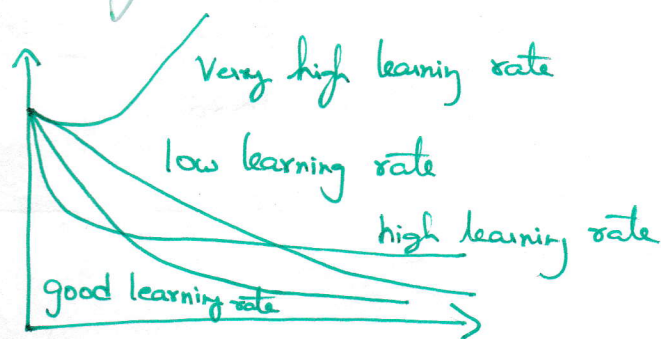 Very high learning rate
low learning rate
high learning rate
good learning rate